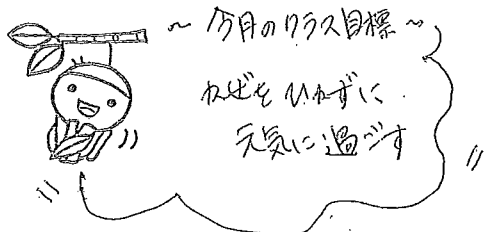 ～今月のクラス目標～
かぜをひかずに
元気に過ごす